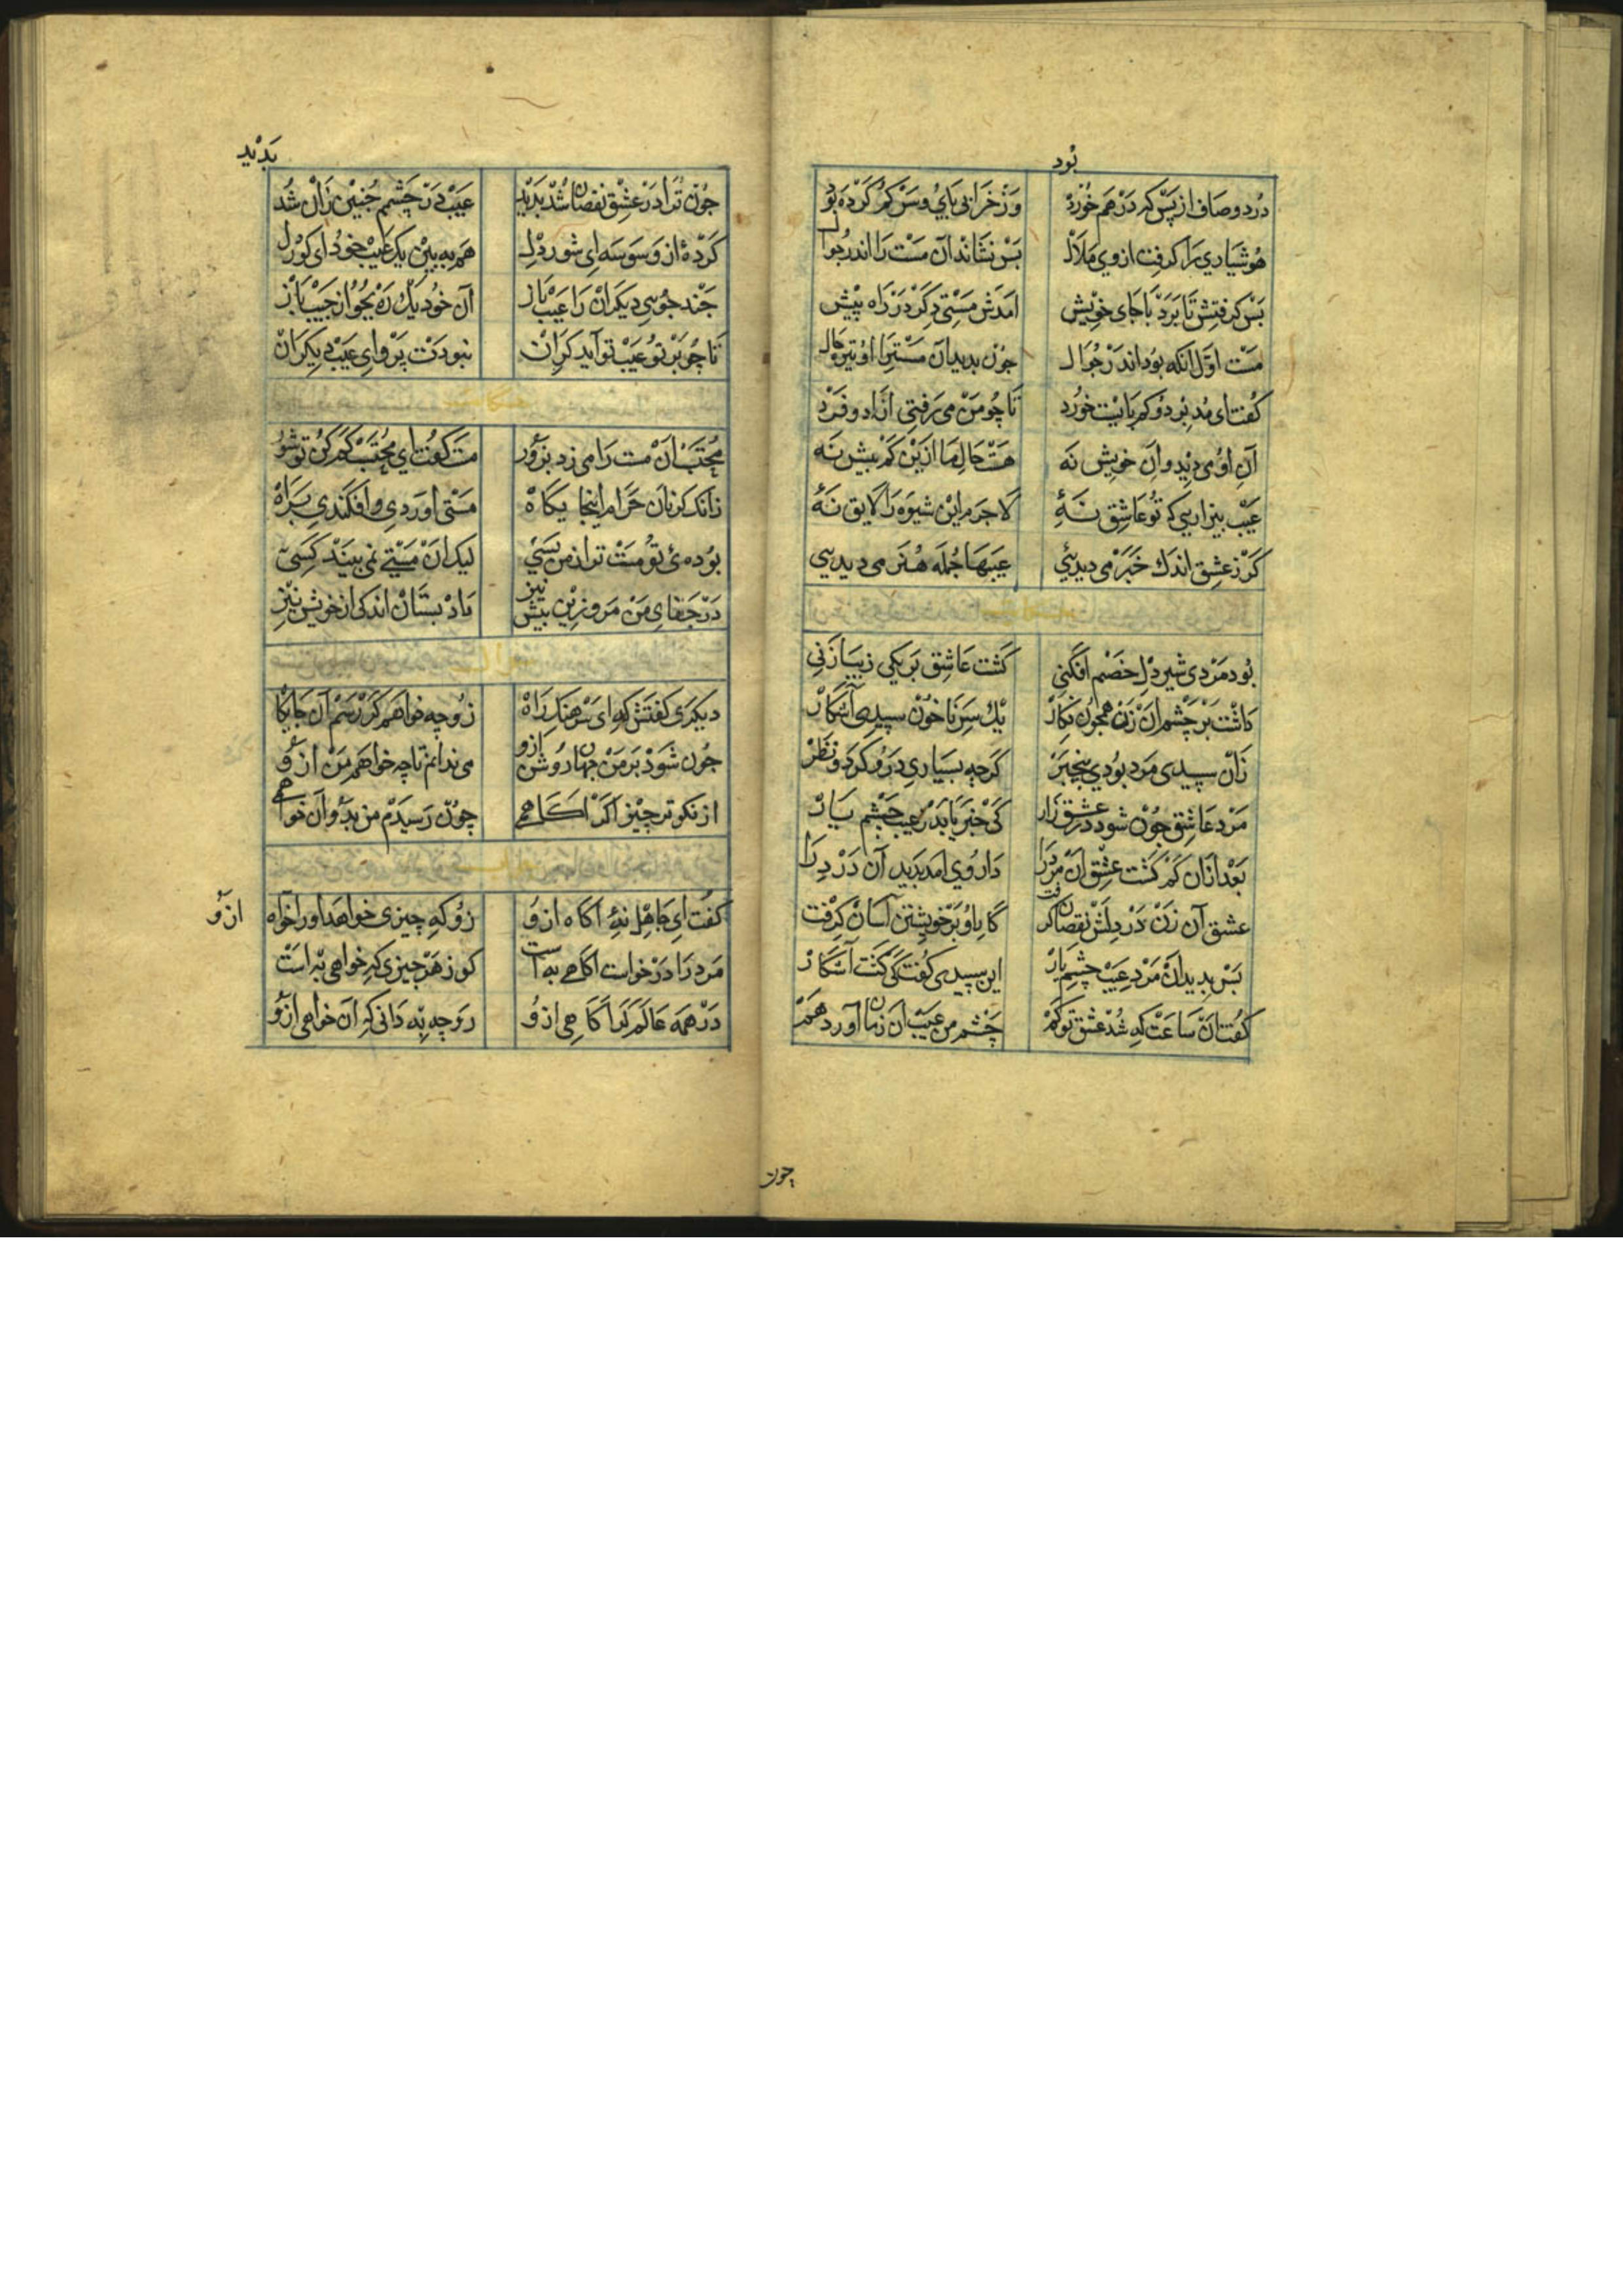 بود
درد و صاف از پس که در هم خورد
وز خرابی پای و سر گم کرده بود
هوشیاری را گرفت از وی ملال
پس نشاند آن مست را اندر جوال
پس گرفتش تا برد با جای خویش
آمدش مستی دگر در راه پیش
مست اول آنکه بود اندر جوال
چون بدید آن مست را او تیره حال
گفت ای مدبر دو کم بایست خورد
تا چو من می رفتی آزاد و فرد
آن او می دید و آن خویش نه
هست حال ما ازین کم بیش نه
عیب بین زانی که تو عاشق نهٔ
لاجرم این شیوه را لایق نهٔ
گر ز عشق اندک خبر می دیدیی
عیبها جمله هنر می دیدیی
بود مردی شیر دل خصم افگنی
گشت عاشق بر یکی زیبا زنی
داشت بر چشم آن زن همچون نگار
یک سر ناخون سپیدی آشکار
زان سپیدی مرد بودی بیخبر
گرچه بسیاری درو کردی نظر
مرد عاشق چون شود در عشق زار
کی خبر یابد ز عیب چشم یار
بعد از آن کم گشت عشق آن مرد را
داروی آمد پدید آن درد را
عشق آن زن در دلش نقصان گرفت
کار او بر خویشتن آسان گرفت
پس بدید آن مرد عیب چشم یار
این سپیدی گفت کی گشت آشکار
گفت آن ساعت که شد عشق تو کم
چشم من عیب آن زمان آورد هم
چون
پدید
چون ترا در عشق نقصان شد پدید
عیب در چشمم چنین زان شد
کردهٔ از وسوسه ای شور دل
هم به بین یک عیب خود ای کور دل
چند جویی دیگران را عیب باز
آن خود یک ره بجو از جیب باز
تا چو بر تو عیب تو آید گران
نبودت پروای عیب دیگران
محتسب آن مست را می زد بزور
مست گفت ای محتسب کم کن تو شور
زانک کز نان حرام اینجایگاه
مستی آوردی و افکندی براه
بوده ئ تو مست تر از من بسی
لیک آن مستی نمی بیند کسی
در جفای من مرو زین بیش نیز
داد بستان اندکی از خویش نیز
دیگری گفتش که ای سرهنگ راه
زو چه خواهم گر رسم آن جایگاه
چون شود بر من جهان روشن ازو
می ندانم تا چه خواهم من ازو
از نکوتر چیز اگر آگاهمی
چون رسیدم من بدو آن خواهمی
گفت ای جاهل نهٔ آگاه ازو
زو که چیزی خواهد او را خواه ازو
مرد را درخواست آگاهی به است
کو ز هر چیزی که خواهی به است
در همه عالم گر آگاهی ازو
رو چه به دانی که آن خواهی ازو